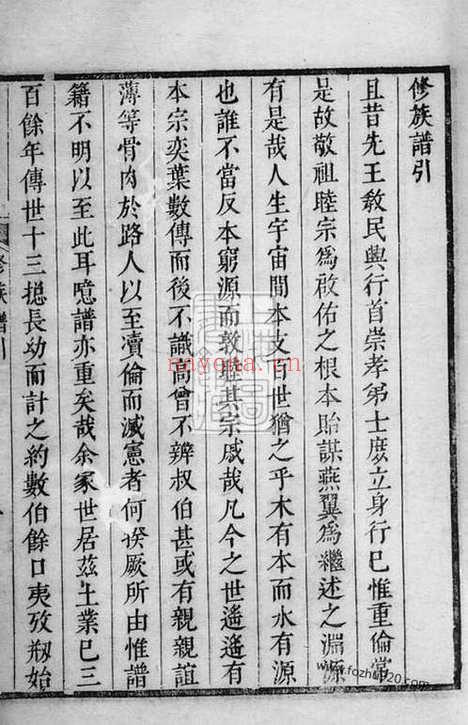 修族譜引
且昔先王教民興行首崇孝弟士庶立身行已惟重倫常
是故敬祖睦宗為啟佑之根本貽謀燕翼為繼述之淵源
有是哉人生宇宙間本支百世猶之乎木有本而水有源
也誰不當反本窮源而敦雍其宗戚哉凡今之世遙遙有
本宗奕葉數傳而後不識高曾不辨叔伯甚或有親親誼
薄等骨肉於路人以至凟倫而滅憲者何揆厥所由惟譜
籍不明以至此耳噫譜亦重矣哉余家世居茲土業已三
百餘年傳世十三摠長幼而計之約數伯餘口夷攷剏始
修族譜引
ndyona.cn
www.fozhu920.com